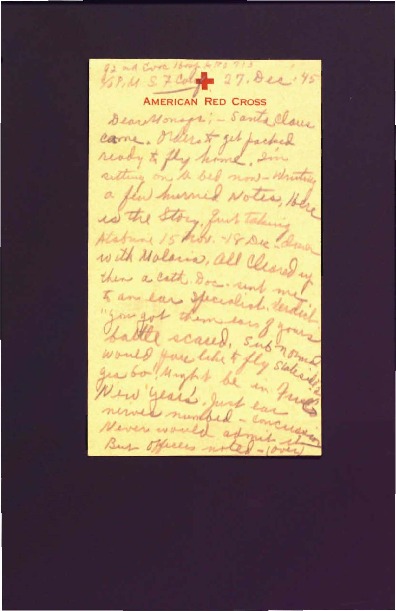 27. Dec. '45
AMERICAN RED CROSS
Santa Claus
came. Orders to get packed
ready to fly home. I'm
sitting on the bed now - Writing
a few hurried Notes, Here
is the Story. Just taking
Atabrine 15 Nov. - 18 Dec. down
with Malaria. All Cleared up
then a Cath. Doc. sent me
to an ear specialist. Verdict
"you got them ears of yours
battle scared, Sub Normal
would you like to fly Stateside?"
gee boy! Might be in
New Years'. Just ear
nerves numbed - concussion
Never would admit it
But officers noted - (over)